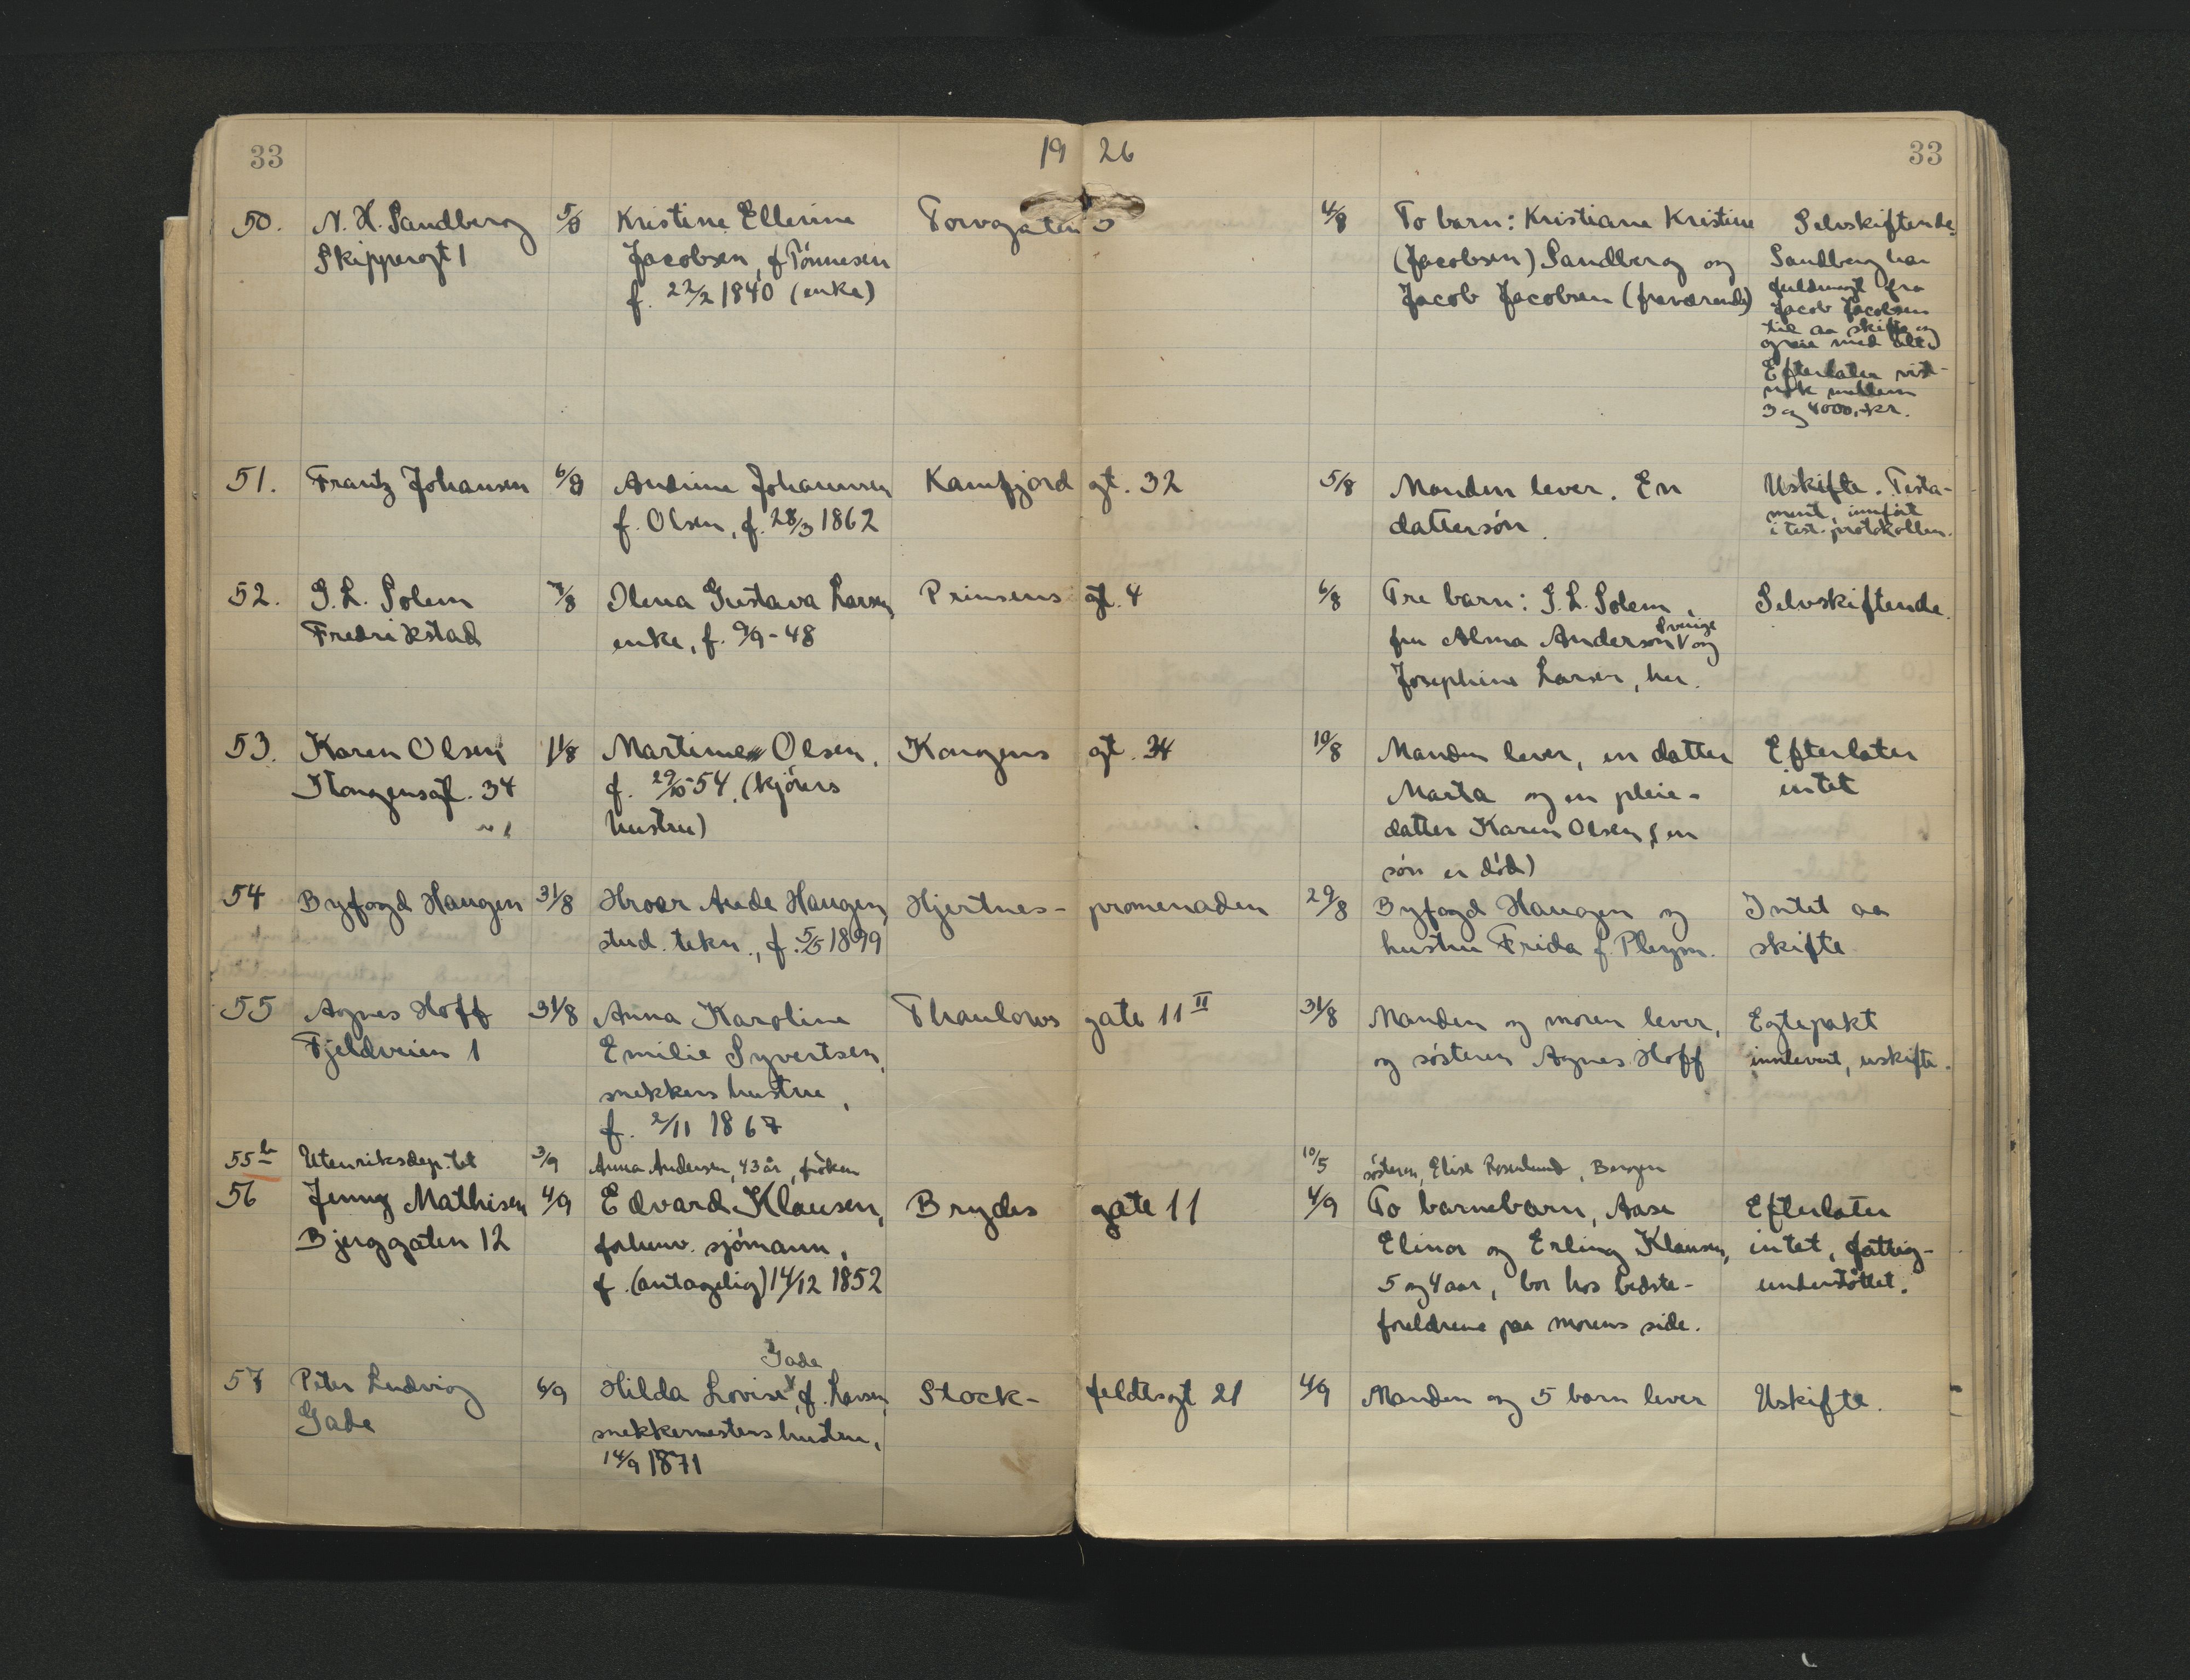 33
19 26
33
50.
N. H. Sandberg
Skippergt 1
5/8
Kristine Ellerine
Jacobsen, f Tönnesen
f. 22/2 1840 (enke)
Torvgaten 5
4/8
To barn: Kristiane Kristine
(Jacobsen) Sandberg og
Jacob Jacobsen (fraværende)
Selvskiftende.
Sandberg har
fuldmagt fra
Jacob Jacobsen
til aa skifte og
greie med alt.
Efterlater vist-
nok mellem
3 og 4000,- kr.
51.
Frantz Johansen
6/8
Andrine Johannesen
f. Olsen, f. 28/3 1862
Kamfjord gt. 32
5/8
Manden lever. En
dattersön.
Uskifte. Testa-
ment, innfört
i test. protokollen.
52.
G. L. Solem
Fredrikstad
7/8
Olena Gustava Larsen
enke, f. 9/9 - 48
Prinsens gt. 4
6/8
Tre barn: G. L. Solem,
Sverige
fru Alma Anderson V og
Josephine Larsen, her.
Selvskiftende.
53.
Karen Olsen
Kongensgt. 34
11/8
Martine Olsen,
f. 29/10-54, (kjörers
hustru)
Kongens gt. 34
10/8
Manden lever, en datter
Marta og en pleie-
datter Karen Olsen (en
sön er död)
Efterlater
intet
54
Byfogd Haugen
31/8
Hroar Aude Haugen,
stud. tekn., f. 5/5 1899
Hjertnes- promenaden
29/8
Byfogd Haugen og
hustru Frida f. Pleym.
Intet aa
skifte.
55
Agnes Hoff
Fjeldveien 1
31/8
Anna Karoline
Emilie Syvertsen,
snekkers hustru,
f. 2/11 1867
Thaulows gate 11 II
31/8
Manden og moren lever,
og sösteren Agnes Hoff
Egtepakt
innlevert, uskifte.
55 b
Utenriksdep.tet
3/9
Anna Andersen, 43 år, fröken
10/5
sösteren, Elise Rosenlund, Bergen
56
Jenny Mathisen
Bjerggaten 12
4/9
Edvard Klausen,
forhenv. sjömann,
f. (antagelig) 14/12 1852
Brydes gate 11
4/9
To barnebarn, Aase
Elinor og Erling Klausen,
5 og 4 aar, bor hos bedste-
foreldrene paa morens side.
Efterlater
intet, fattig-
understöttet.
57
Peter Ludvig
Gade
6/9
Gade
Hilda Lovise V, f. Larsen,
snekkermesters hustru,
14/9 1871
Stock- feldtsgt 21
4/9
Manden og 5 barn lever
Uskifte.